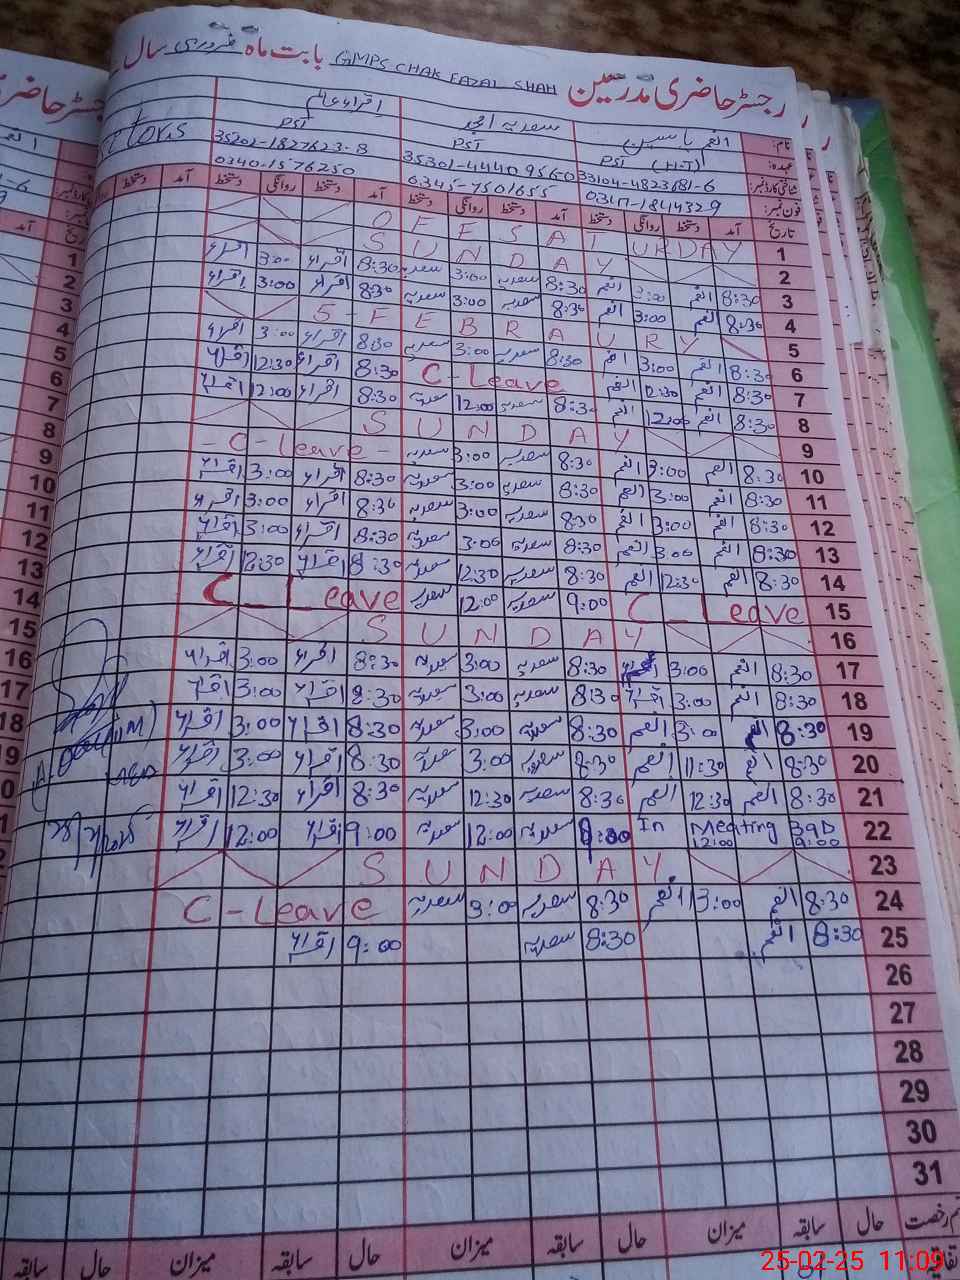 رجسٹر حاضری مدرسین GMPS CHAK FAZAL SHAH بابت ماہ فروری سال
نام: انعم یاسین سعدیہ امجد اقراء عالم
عہدہ: PST (H-T) PST PST
شناختی کارڈ نمبر: 33104-4823681-6 35301-4440956-0 35201-1827623-8
فون نمبر: 0347-1844329 0345-7501655 0340-1576250
تاریخ آمد دستخط روانگی دستخط آمد دستخط روانگی دستخط آمد دستخط روانگی دستخط
1 OFF SATURDAY
2 SUNDAY
3 8:30 انعم 3:00 انعم 8:30 سعدیہ 3:00 سعدیہ 8:30 اقراء 3:00 اقراء
4 8:30 انعم 3:00 انعم 8:30 سعدیہ 3:00 سعدیہ 8:30 اقراء 3:00 اقراء
5 5-FEBRAURY
6 8:30 انعم 3:00 انعم 8:30 سعدیہ 3:00 سعدیہ 8:30 اقراء 3:00 اقراء
7 8:30 انعم 12:30 انعم C-Leave 8:30 اقراء 12:30 اقراء
8 8:30 انعم 12:00 انعم 8:30 سعدیہ 12:00 سعدیہ 8:30 اقراء 12:00 اقراء
9 SUNDAY
10 8:30 انعم 3:00 انعم 8:30 سعدیہ 3:00 سعدیہ - C-Leave -
11 8:30 انعم 3:00 انعم 8:30 سعدیہ 3:00 سعدیہ 8:30 اقراء 3:00 اقراء
12 8:30 انعم 3:00 انعم 8:30 سعدیہ 3:00 سعدیہ 8:30 اقراء 3:00 اقراء
13 8:30 انعم 3:00 انعم 8:30 سعدیہ 3:00 سعدیہ 8:30 اقراء 3:00 اقراء
14 8:30 انعم 12:30 انعم 8:30 سعدیہ 12:30 سعدیہ 8:30 اقراء 12:30 اقراء
15 C-Leave 9:00 سعدیہ 12:00 سعدیہ C-Leave
16 SUNDAY
17 8:30 انعم 3:00 8:30 سعدیہ 3:00 سعدیہ 8:30 اقراء 3:00 اقراء
18 8:30 انعم 3:00 اقراء 8:30 سعدیہ 3:00 سعدیہ 8:30 اقراء 3:00 اقراء
19 8:30 انعم 3:00 انعم 8:30 سعدیہ 3:00 سعدیہ 8:30 اقراء 3:00 اقراء
20 8:30 انعم 11:30 انعم 8:30 سعدیہ 3:00 سعدیہ 8:30 اقراء 3:00 اقراء
21 8:30 انعم 12:30 انعم 8:30 سعدیہ 12:30 سعدیہ 8:30 اقراء 12:30 اقراء
22 In Meating 12:00 9:00 سعدیہ 12:00 سعدیہ 9:00 اقراء 12:00 اقراء
23 SUNDAY
24 8:30 انعم 3:00 انعم 8:30 سعدیہ 3:00 سعدیہ C-Leave
25 8:30 انعم 8:30 سعدیہ 9:00 اقراء
26
27
28
29
30
31
رخصت حال سابقہ میزان حال سابقہ میزان حال سابقہ میزان حال سابقہ
25-02-25 11:09